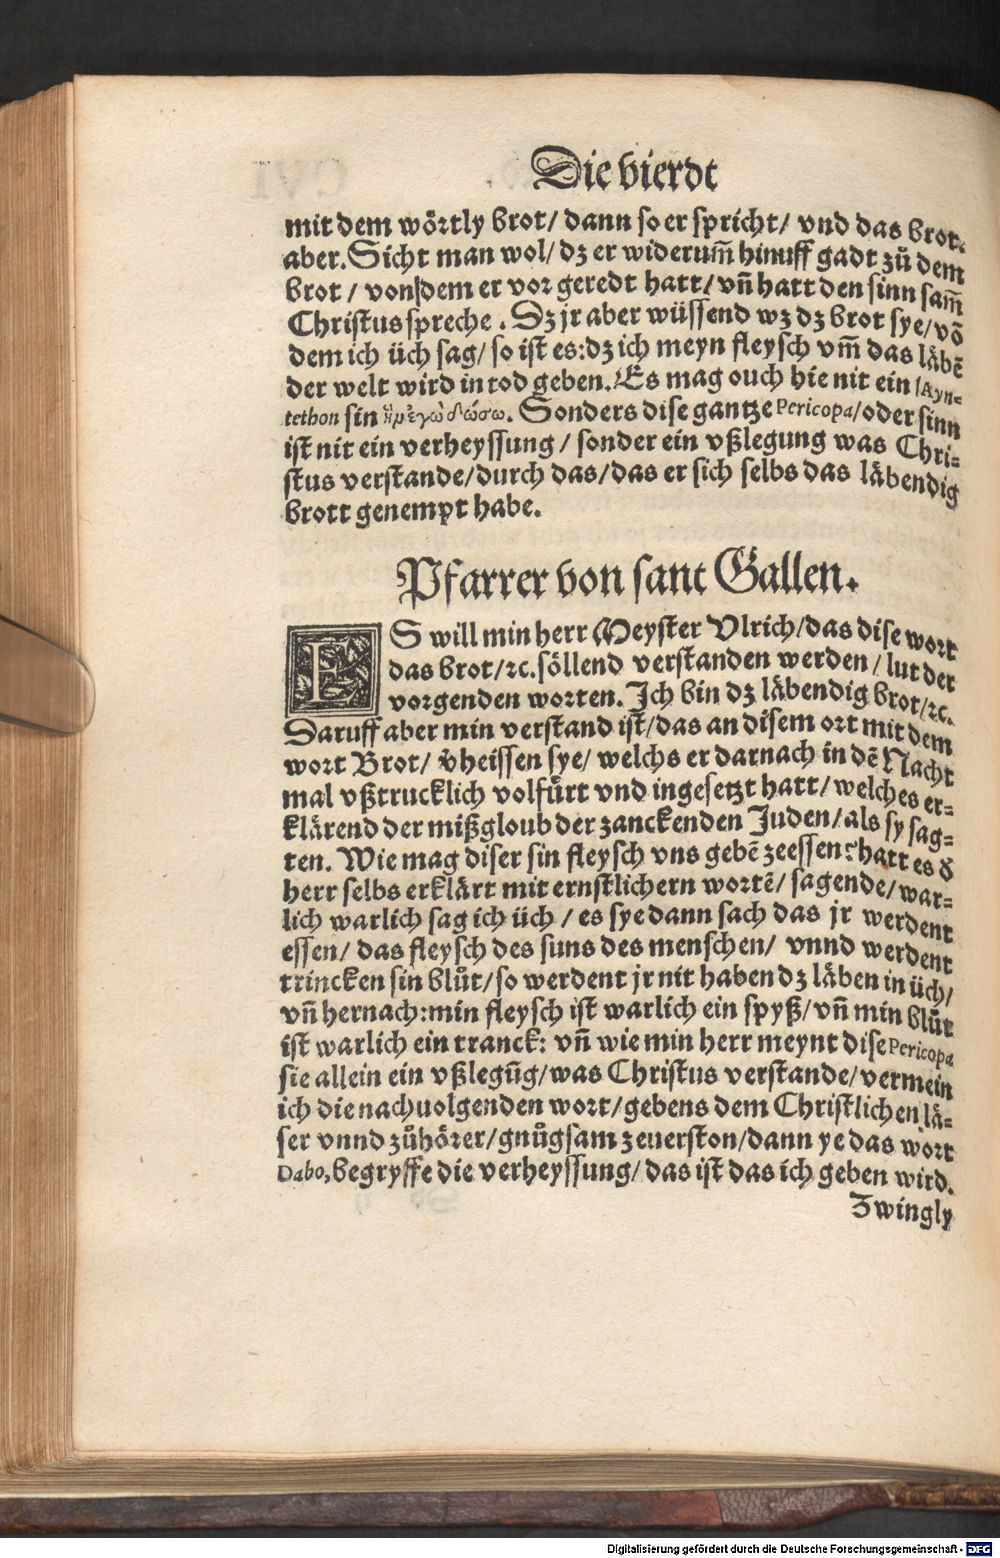 Die vierdt
mit dem wörtly brot/ dann so er spricht/ vnd das brot
aber. Sicht man wol/ dz er widerum̃ hinuff gadt zů dem
brot / von dem er vor geredt hatt/ vñ hatt den sinn sam̃
Christus spreche . Dz jr aber wüssend wz dz brot sye/ võ
dem ich üch sag/ so ist es: dz ich meyn fleysch vm̃ das läbẽ
der welt wird in tod geben. Es mag ouch hie nit ein Ayn-
tethon sin ἣν ἐγὼ δώσω. Sonders dise gantze Pericopa/ oder sinn
ist nit ein verheyssung / sonder ein vßlegung was Chri-
stus verstande/ durch das/ das er sich selbs das läbendig
brott genempt habe.
Pfarrer von sant Gallen.
ES will min herr Meyster Vlrich/ das dise wort
das brot/ ꝛc. söllend verstanden werden / lut der
vorgenden worten. Ich bin dz läbendig brot/ ꝛc.
Daruff aber min verstand ist/ das an disem ort mit dem
wort Brot/ v̈heissen sye/ welchs er darnach in dẽ Nacht
mal vßtrucklich volfürt vnd ingesetzt hatt/ welches er-
klärend der mißgloub der zanckenden Juden/ als sy sag-
ten. Wie mag diser sin fleysch vns gebẽ zeessen? hatt es d̕
herr selbs erklärt mit ernstlichern wortẽ/ sagende/ war-
lich warlich sag ich üch / es sye dann sach das jr werdent
essen/ das fleysch des suns des menschen/ vnnd werdent
trincken sin blůt/ so werdent jr nit haben dz läben in üch/
vñ hernach: min fleysch ist warlich ein spyß/ vñ min blůt
ist warlich ein tranck: vñ wie min herr meynt dise Pericopa
sie allein ein vßlegũg/ was Christus verstande/ vermein
ich die nachuolgenden wort/ gebens dem Christlichen lä-
ser vnnd zůhörer/ gnůgsam zeuerston/ dann ye das wort
Dabo, begryffe die verheyssung/ das ist das ich geben wird.
Zwingly
Digitalisierung gefördert durch die Deutsche Forschungsgemeinschaft - DFG